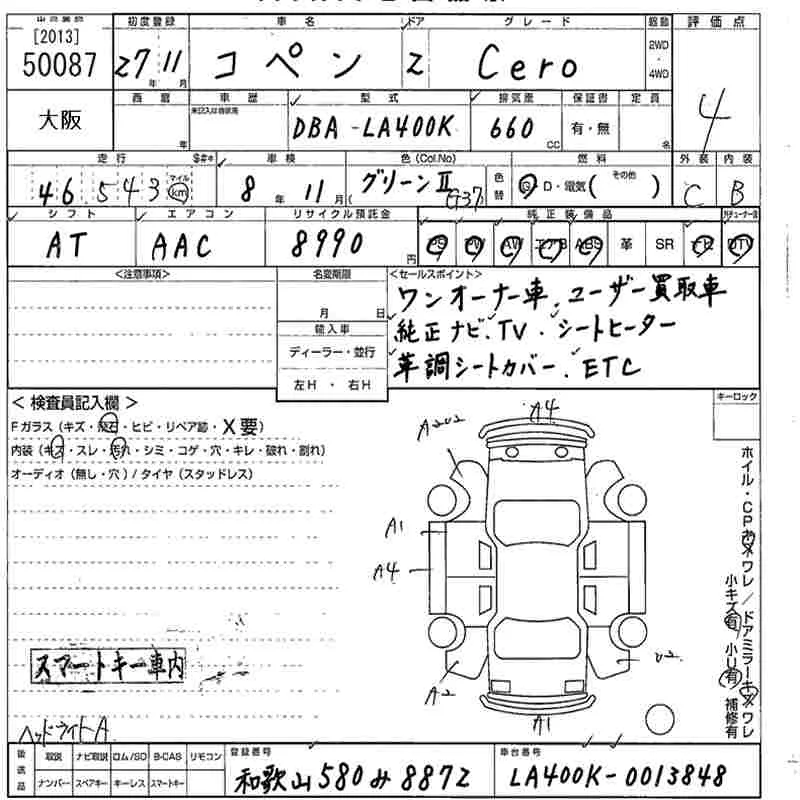 [2013]
50087
大阪
初度登録
27年 11月
車名
コペン
ドア
2
グレード
Cero
駆動
2WD
・
4WD
評価点
4
西暦
年
車歴
型式
DBA-LA400K
排気量
660 CC
保証書
有・無
定員
名
走行
46,543
マイル
km
車検
8年 11月
色(Col.No)
グリーンⅡ(G37)
色替
燃料
G・D・電気( その他 )
外装
C
内装
B
シフト
AT
エアコン
AAC
リサイクル預託金
8990円
純正装備品
PS PW AW エアB ABS 革 SR ナビ TV
<注意事項>
名変期限
月 日
輸入車
ディーラー・並行
左H・右H
<セールスポイント>
ワンオーナー車、ユーザー買取車
純正ナビ、TV、シートヒーター
革調シートカバー、ETC
<検査員記入欄>
Fガラス(キズ・飛石・ヒビ・リペア跡・X要)
内装(キズ・スレ・汚れ・シミ・コゲ・穴・キレ・破れ・割れ)
オーディオ(無し・穴)/タイヤ(スタッドレス)
スマートキー車内
ヘッドライトA
キーロック
A4
A202
A1
A4
A2
U2
A1
ホイル・CPキズワレ/ドアミラーキズワレ
小キズ有 小U有 補修有
後送品
取説 ナビ取説 ロム/SD B-CAS リモコン
ナンバー スペアキー キーレス スマートキー
登録番号
和歌山580み8872
車台番号
LA400K-0013848